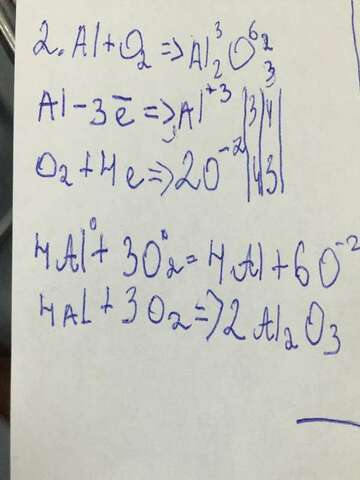 2. Al + O₂ => Al₂³O₃⁶ ²
Al - 3ē => Al⁺³ |3|4|
O₂ + 4e => 2O⁻² |4|3|
4Al⁰ + 3O₂⁰ = 4Al + 6O⁻²
4Al + 3O₂ => 2Al₂O₃